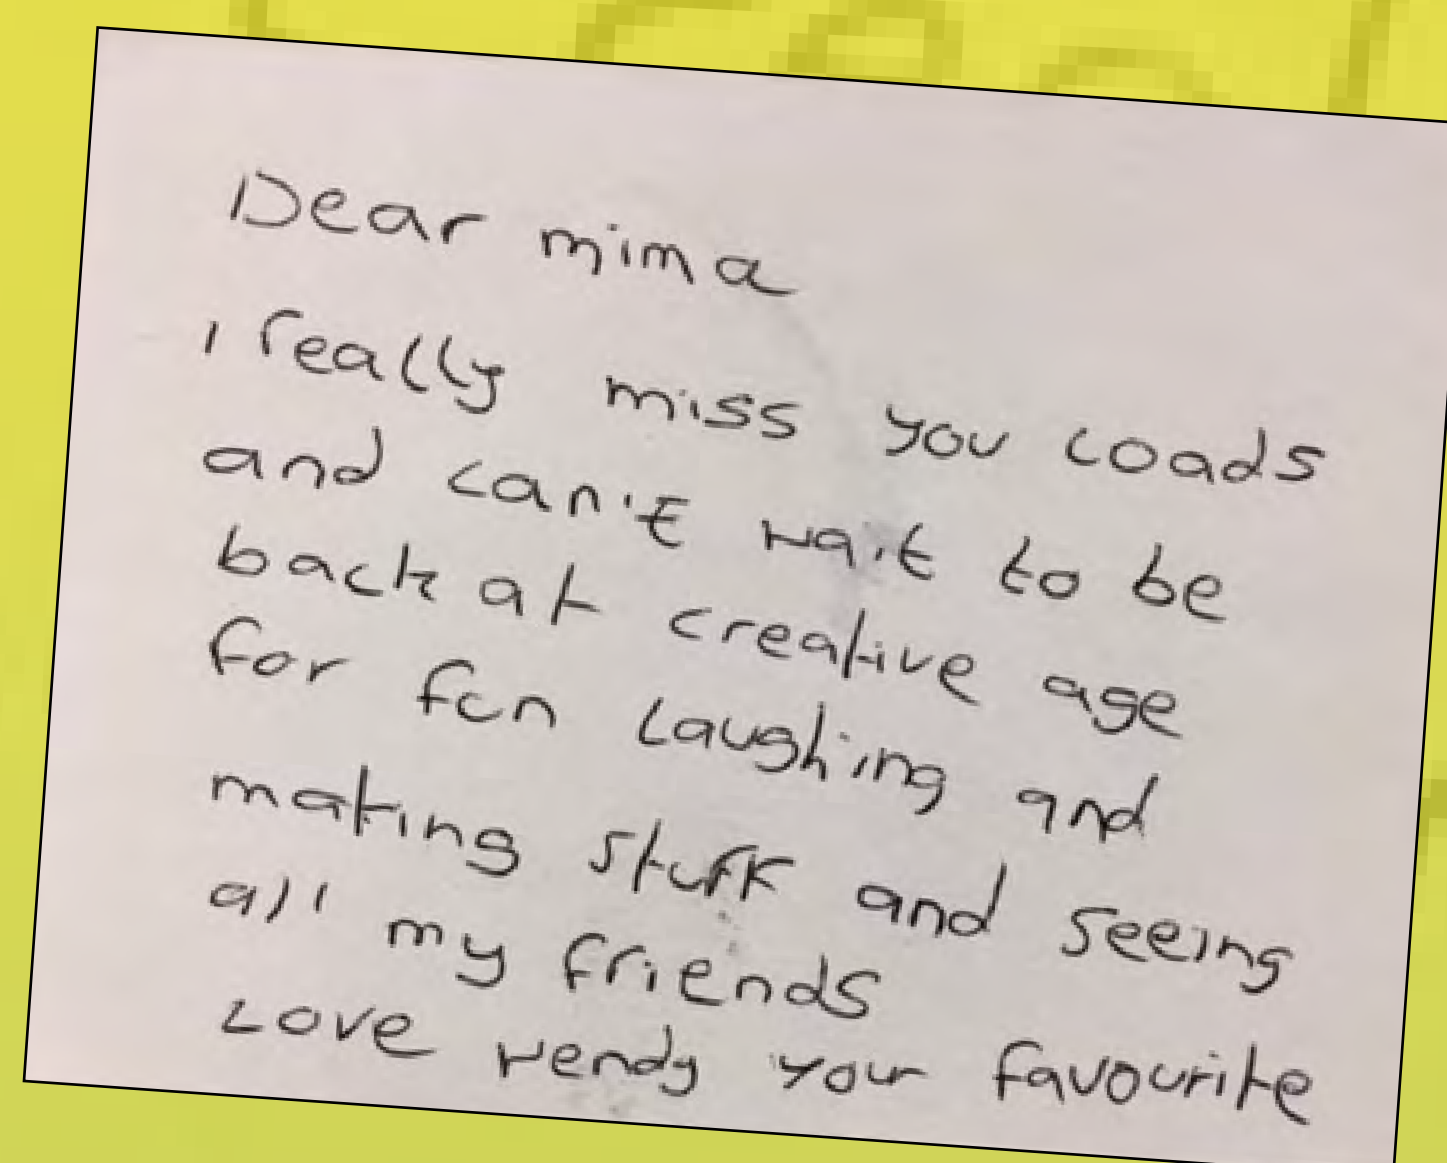 Dear mima
I really miss you loads
and can't wait to be
back at creative age
for fun Laughing and
making stuff and seeing
all my friends
Love Wendy your favourite